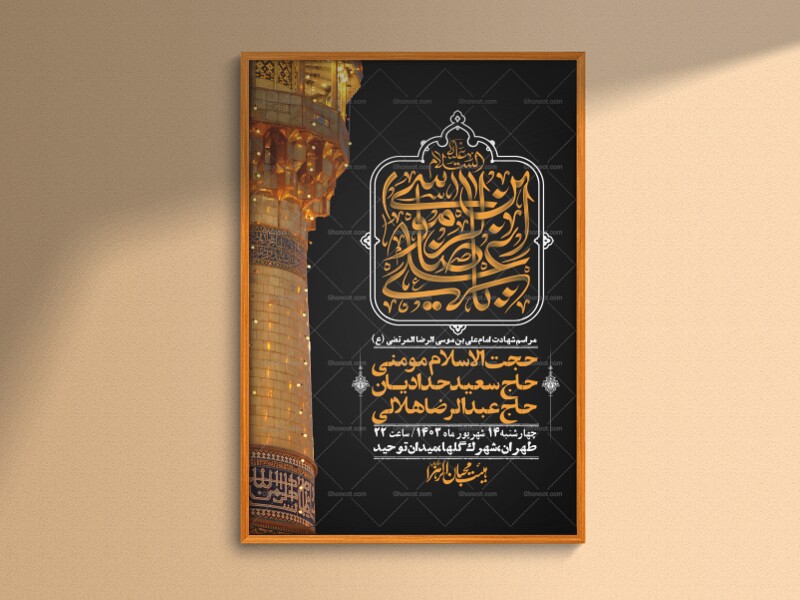 علیه السلام
مراسم شهادت امام علی بن موسی الرضا المرتضی (ع)
حجت الاسلام مومنی
حاج سعید حدادیان
حاج عبدالرضا هلالی
چهارشنبه ۱۴ شهریور ماه ۱۴۰۳ / ساعت ۲۲
طهران، شهرک گلها، میدان توحید
هیئت محبان الزهرا
Ghonoot.com